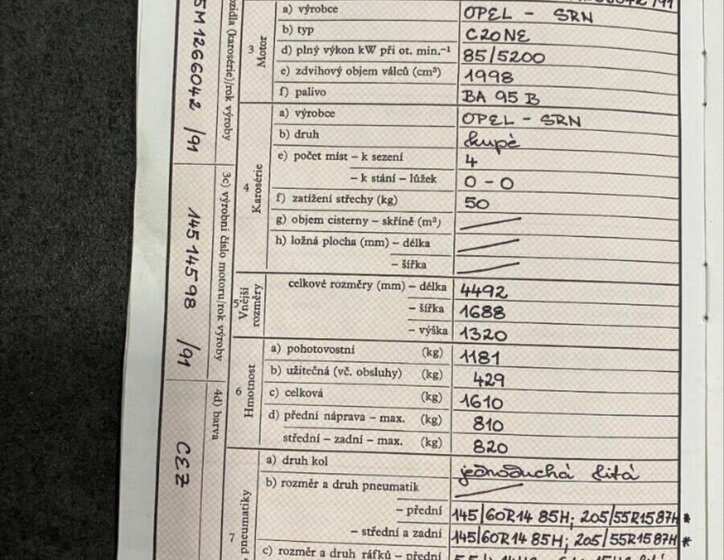 3 Motor
a) výrobce OPEL - SRN
b) typ C20NE
d) plný výkon kW při ot. min.⁻¹ 85/5200
e) zdvihový objem válců (cm³) 1998
f) palivo BA 95 B
4 Karosérie
a) výrobce OPEL - SRN
b) druh kupé
e) počet míst – k sezení 4
– k stání – lůžek 0 - 0
f) zatížení střechy (kg) 50
g) objem cisterny – skříně (m³)
h) ložná plocha (mm) – délka
– šířka
5 Vnější rozměry
celkové rozměry (mm) – délka 4492
– šířka 1688
– výška 1320
6 Hmotnost
a) pohotovostní (kg) 1181
b) užitečná (vč. obsluhy) (kg) 429
c) celková (kg) 1610
d) přední náprava – max. (kg) 810
střední – zadní – max. (kg) 820
7 pneumatiky
a) druh kol jednoduchá litá
b) rozměr a druh pneumatik
– přední 145/60R14 85H; 205/55R15 87H *
– střední a zadní 145/60R14 85H; 205/55R15 87H *
c) rozměr a druh ráfků – přední
(karosérie)/rok výroby
5M1266042 /91
3c) výrobní číslo motoru/rok výroby
14514598 /91
4d) barva